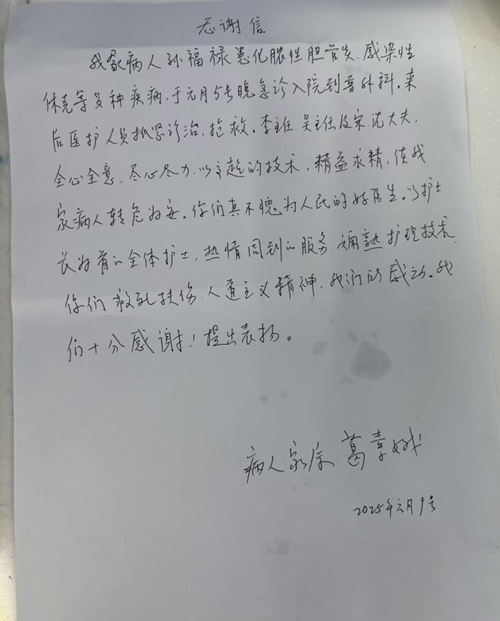 感谢信
我家病人孙福禄患化脓性胆管炎、感染性
休克等多种疾病,于元月5号晚急诊入院到普外科。来
后医护人员抓紧诊治,抢救。李主任吴主任及宋沈大夫,
全心全意,尽心尽力,以卓越的技术,精益求精,使我
家病人转危为安。你们真不愧为人民的好医生。以护士
长为首的全体护士,热情周到的服务,娴熟护理技术,
你们救死扶伤,人道主义精神,我们的感动。我
们十分感谢!提出表扬。
病人家属 葛
2025年元月9号